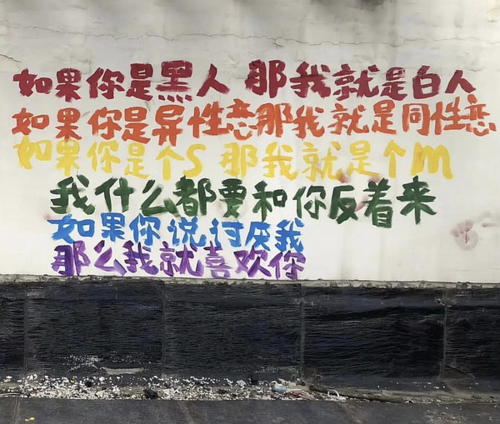 如果你是黑人 那我就是白人
如果你是异性恋那我就是同性恋
如果你是个S 那我就是个m
我什么都要和你反着来
如果你说讨厌我
那么我就喜欢你